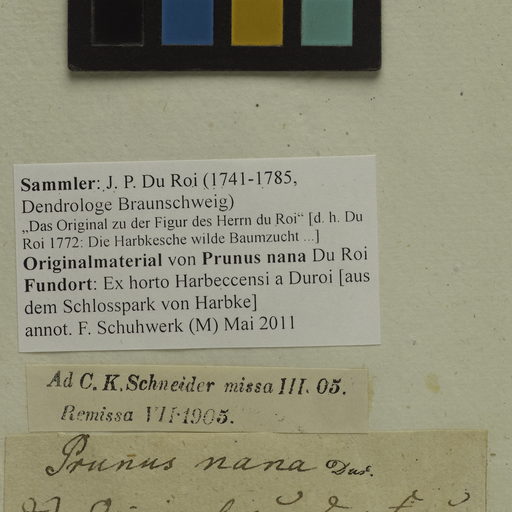 Sammler: J. P. Du Roi (1741-1785,
Dendrologe Braunschweig)
„Das Original zu der Figur des Herrn du Roi“ [d. h. Du
Roi 1772: Die Harbkesche wilde Baumzucht ...]
Originalmaterial von Prunus nana Du Roi
Fundort: Ex horto Harbeccensi a Duroi [aus
dem Schlosspark von Harbke]
annot. F. Schuhwerk (M) Mai 2011
Ad C. K. Schneider missa III. 05.
Remissa VII·1905.
Prunus nana Dur.